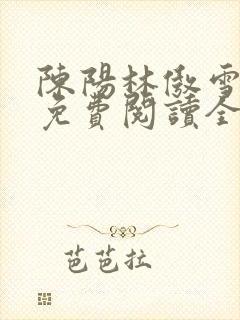 陳陽林傲雪
免費閱讀全
芭芭拉